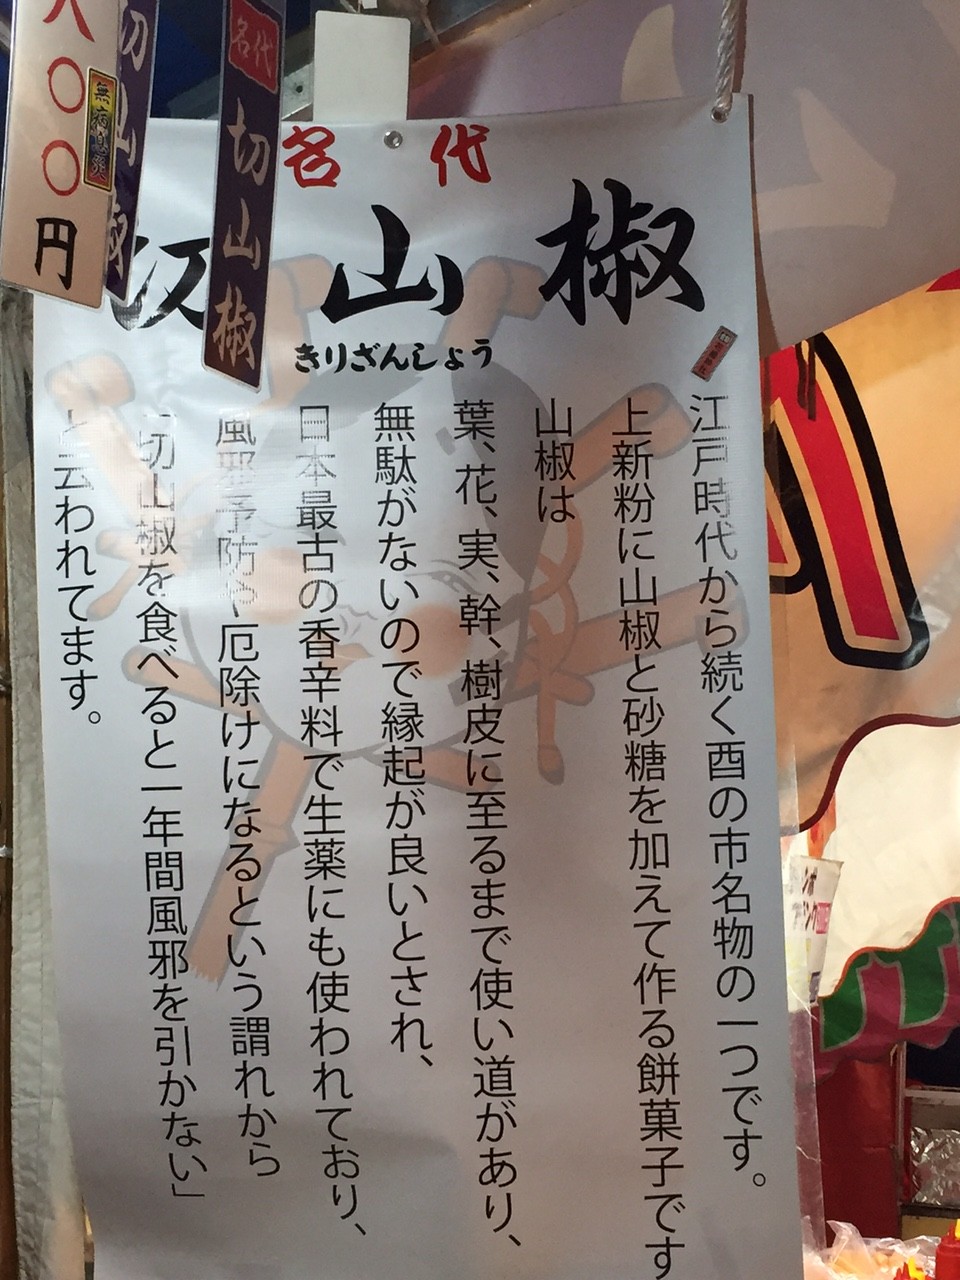 名代
切山椒
きりざんしょう
江戸時代から続く酉の市名物の一つです。
上新粉に山椒と砂糖を加えて作る餅菓子です
山椒は
葉、花、実、幹、樹皮に至るまで使い道があり、
無駄がないので縁起が良いとされ、
日本最古の香辛料で生薬にも使われており、
風邪予防や厄除けになるという謂れから
「切山椒を食べると一年間風邪を引かない」
と云われてます。
名代
切山椒
切山椒
八〇〇円
無病息災